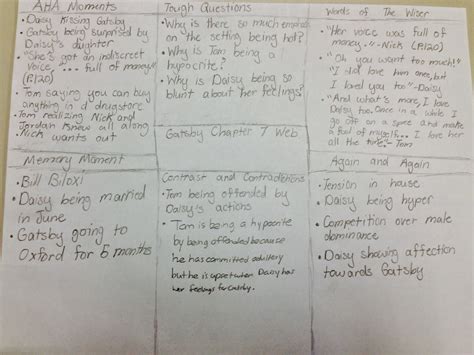 AHA Moments
• Daisy Kissing Gatsby
• Gatsby being surprised by
Daisy's daughter
• "She's got an indiscreet
voice, ... full of money"
(P.120)
• Tom saying you can buy
anything in a drugstore
• Tom realizing Nick and
Jordan knew all along
• Nick wants out
Tough Questions
• Why is there so much emphasis
on the setting being hot?
• Why is Tom being a
hypocrite?
• Why is Daisy being so
blunt about her feelings?
Words of The Wiser
• "Her voice was full of
money." -Nick (P.120)
• "Oh you want too much!"
"I did love him once, but
I loved you too" -Daisy
• "And what's more, I love
Daisy too. Once in a while I
go off on a spree and make
a fool of myself... I love her
all the time," -Tom
Gatsby Chapter 7 Web
Memory Moment
• Bill Biloxi
• Daisy being married
in June
• Gatsby going to
Oxford for 5 months
Contrast and Contradictions
• Tom being offended by
Daisy's actions
• Tom is being a hypocrite
by being offended because
he has committed adultery
but he is upset when Daisy has
her feelings for Gatsby.
Again and Again
• Tension in house
• Daisy being hyper
• Competition over male
dominance
• Daisy showing affection
towards Gatsby